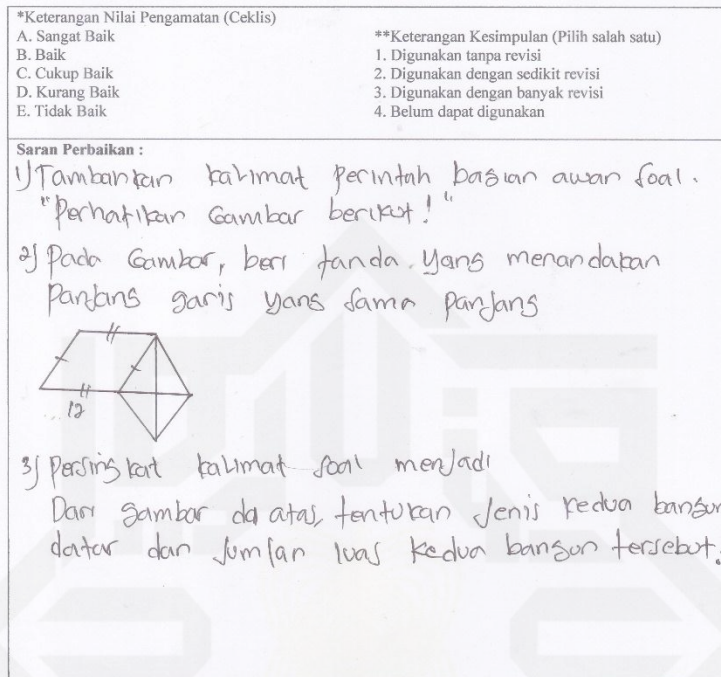 *Keterangan Nilai Pengamatan (Ceklis)
A. Sangat Baik
B. Baik
C. Cukup Baik
D. Kurang Baik
E. Tidak Baik
**Keterangan Kesimpulan (Pilih salah satu)
1. Digunakan tanpa revisi
2. Digunakan dengan sedikit revisi
3. Digunakan dengan banyak revisi
4. Belum dapat digunakan
Saran Perbaikan :
1) Tambahkan kalimat perintah bagian awal soal.
"Perhatikan Gambar berikut!"
2) Pada Gambar, beri tanda yang menandakan
Panjang garis yang sama panjang
12
3) Persingkat kalimat soal menjadi
Dari gambar di atas, tentukan jenis kedua bangun
datar dan jumlah luas kedua bangun tersebut.